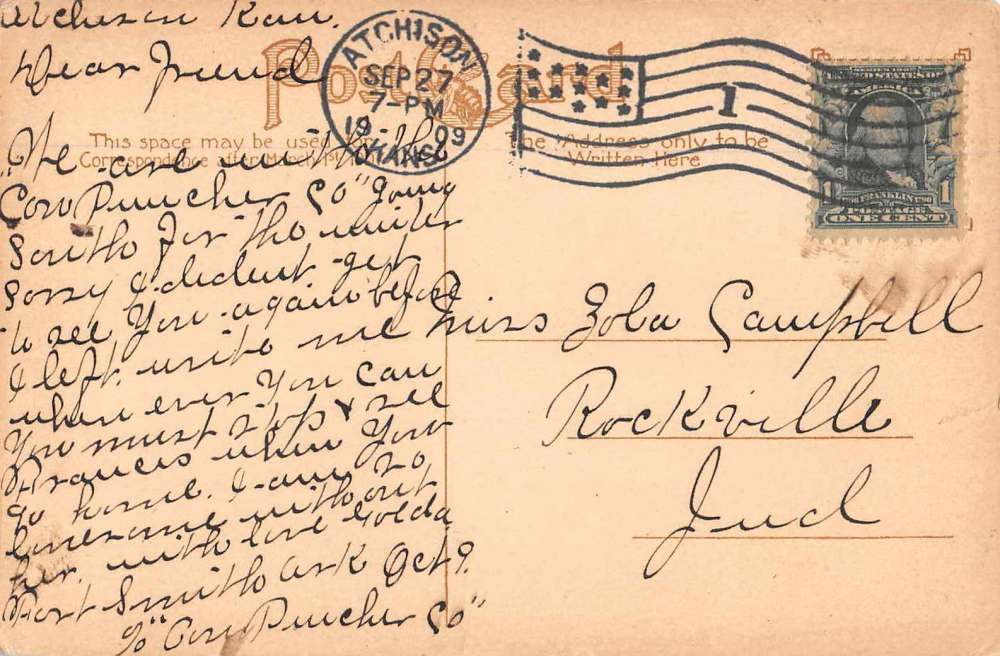 Atchison Kan.
Dear Friend
We are with the
"Cow Puncher Co" going
South for the winter
sorry I dident get
to see you again before
I left. write me
when ever you can
You must stop & see
Frances when you
go home. I am so
lonesome without
her. with love Golda
Fort Smith Ark Oct 9.
% "Cow Puncher Co"
Post Card
This space may be used for
Correspondence after March 1st
The Address only to be
Written Here
ATCHISON
SEP 27
7-PM
1909
KANS.
1
UNITED STATES OF
AMERICA
FRANKLIN
1 POSTAGE 1
ONE CENT
Miss Zoba Campbell
Rockville
Ind